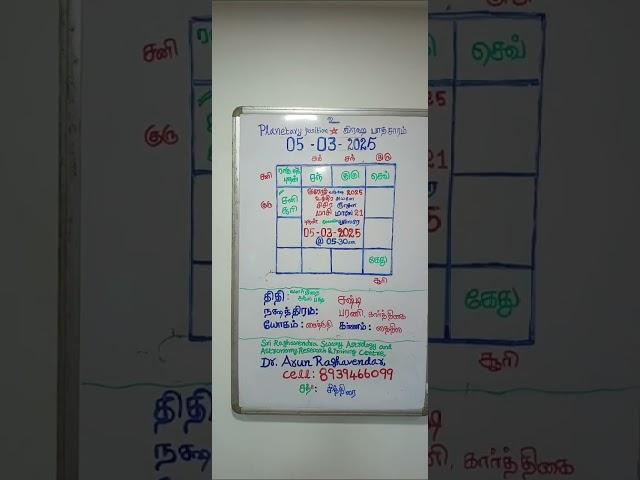 உ
Planetary position ☆ கிரஹ பாதசாரம்
05-03-2025
சனி
சந் குரு செவ்
குரு
சனி
சூரி
மாசி மாதம் 21
05-03-2025
@ 05-30
கேது
சூரி
திதி: சஷ்டி
நக்ஷத்திரம்: பரணி, கார்த்திகை
யோகம்: கரணம்:
Sri Raghavendra Swamy Astrology and
Astronomy Research & Training Centre
Dr. Arun Raghavendar,
Cell: 8939466099
சித்திரை